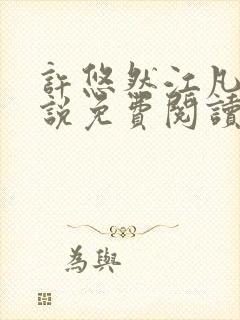 許悠然江凡
說免費閱讀
為與